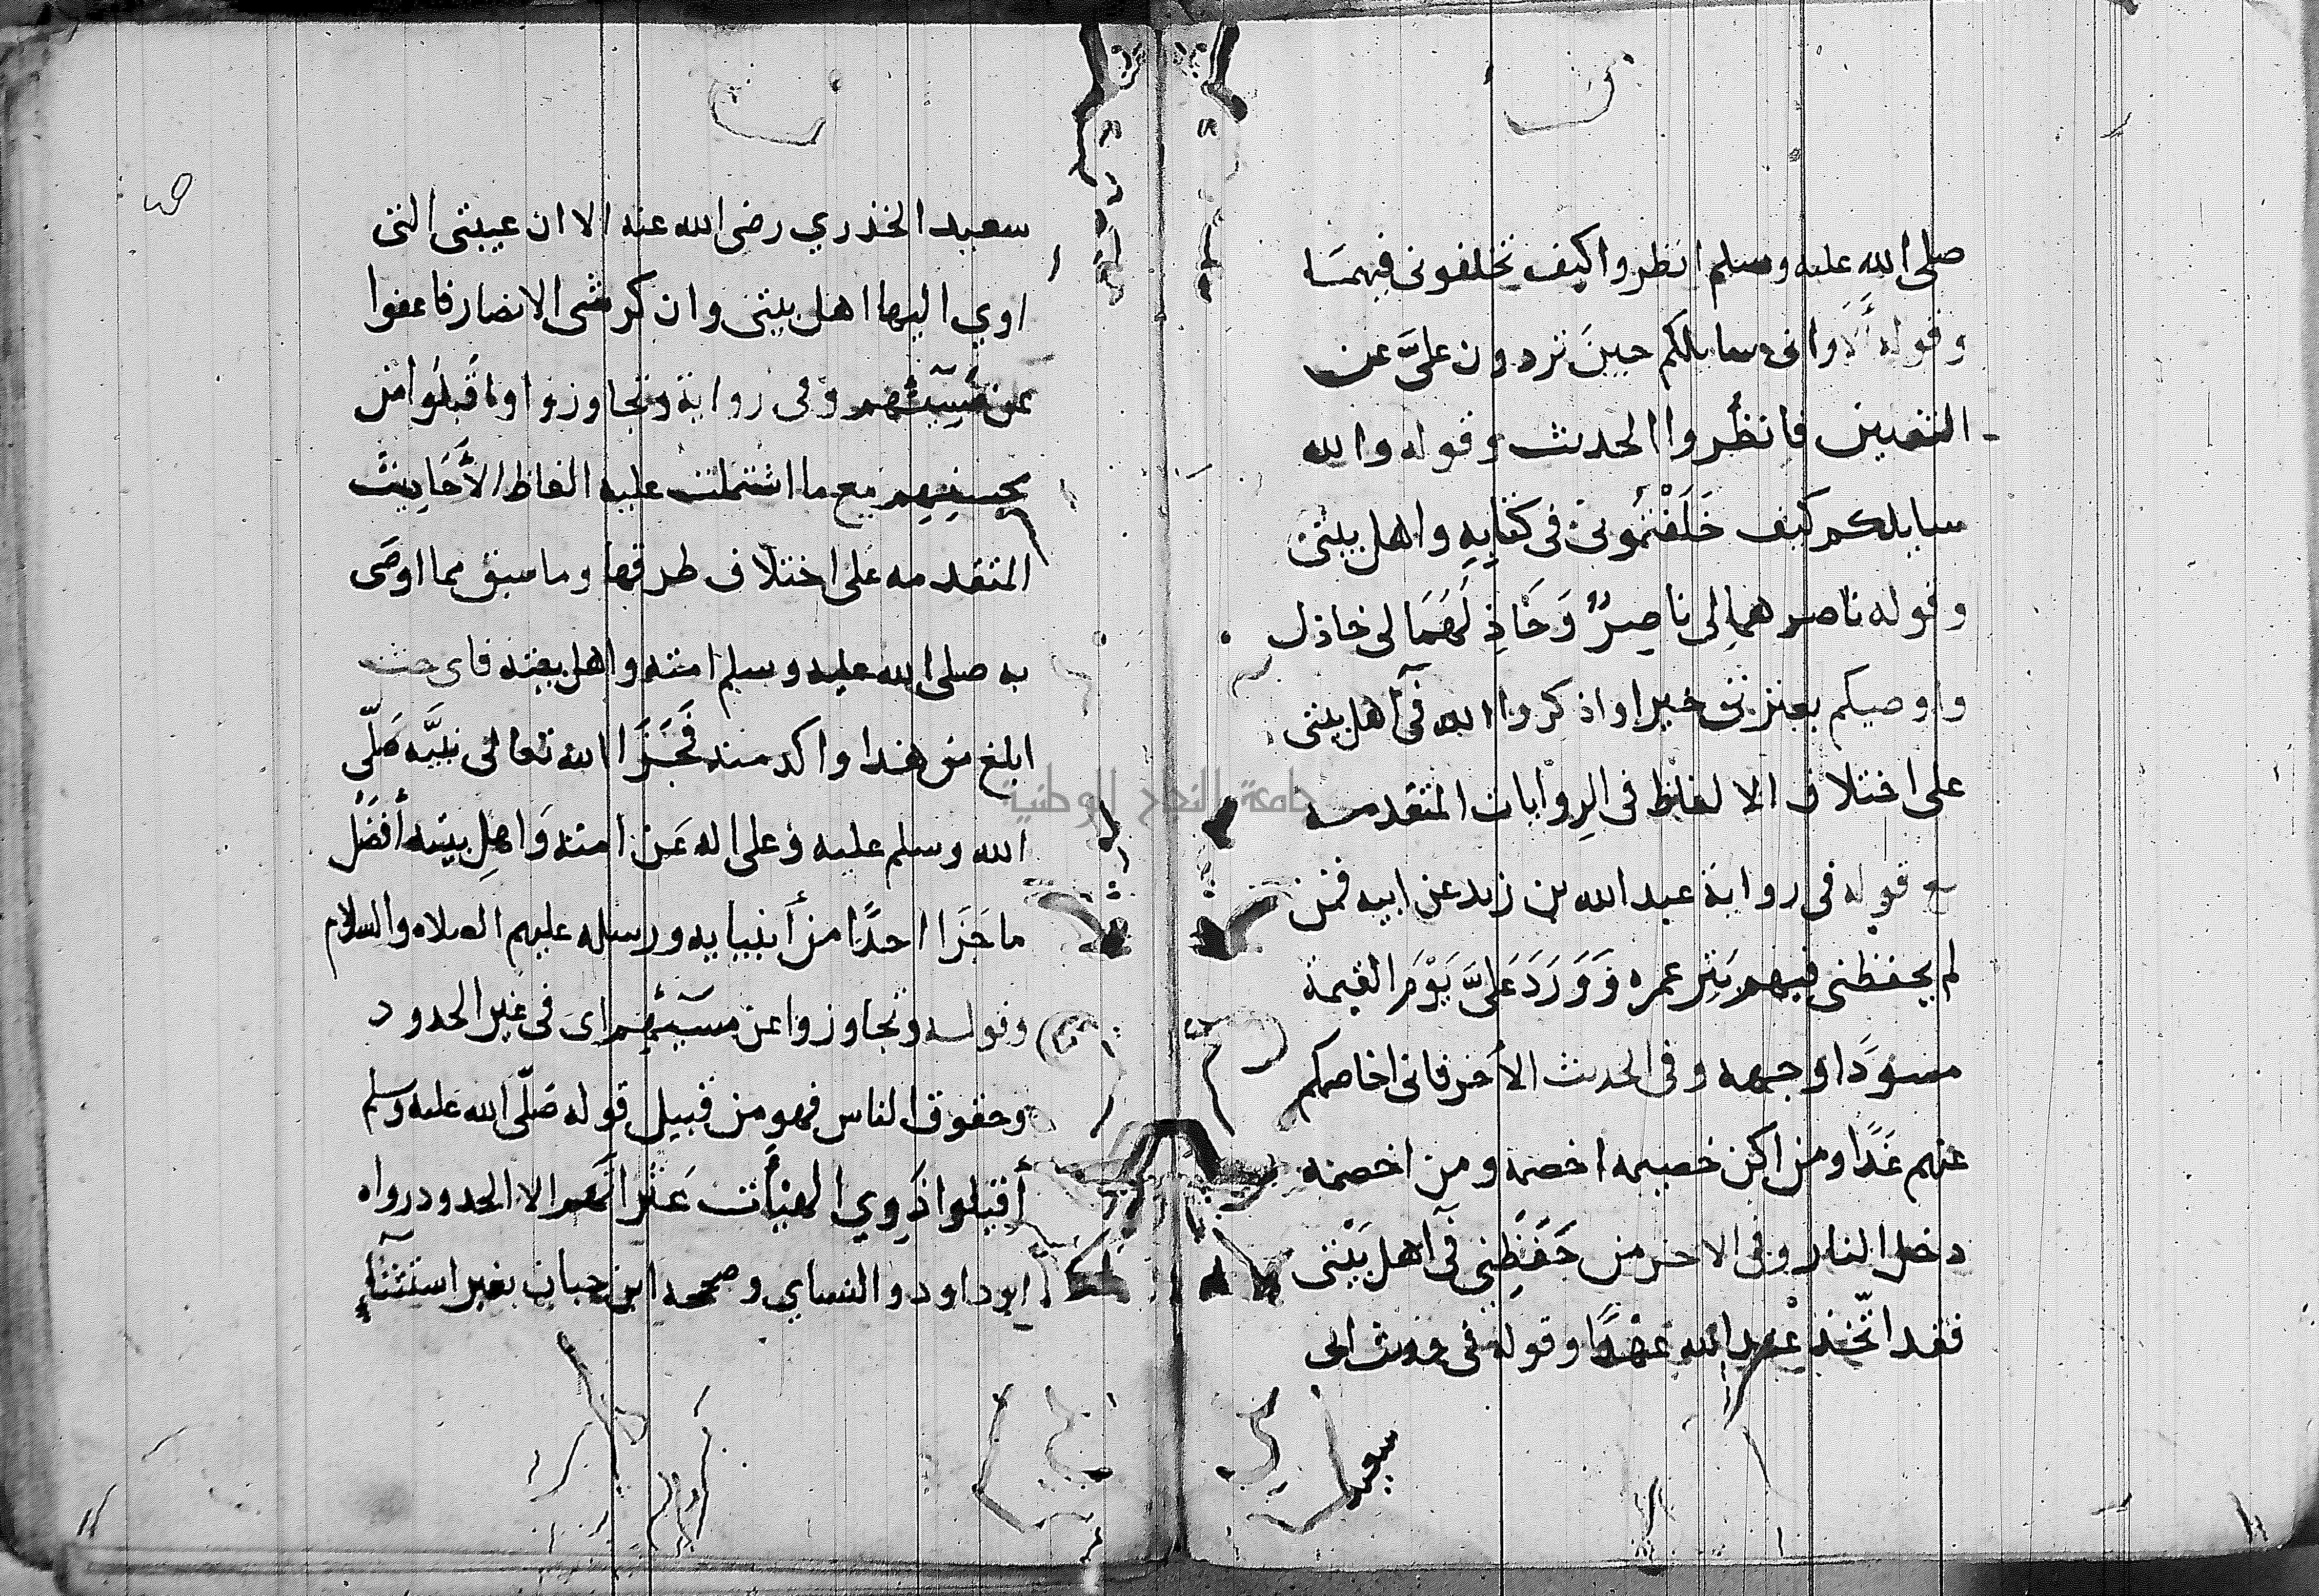 صلى الله عليه وسلم انظروا كيف تخلفونى فيهما
وقوله ألا وانى سايلكم حين تردون علىَّ عن
الثقلين فانظُروا الحديث وقوله والله
سايلكم كيف خَلَفْتُمُونى فى كتابِهِ واهل بيتى
وقوله ناصرهما لى ناصِرٌ وَخَاذِلُهُمَا لى خاذل
واوصيكم بعترتى خيرا واذكروا الله فى أهل بيتى
على اختلاف الالفاظ فى الرِوايات المتقدمه
مع قوله فى رواية عبد الله بن زيد عن ابيه فمن
لم يحفظنى فيهم بُتِر عمره وَوَرَدَ عَلىَّ يَوْمَ القيمة
مسوَدًّا وجهه وفى الحديث الأخر فانى اخاصمكم
عنهم غَدًا ومن اكن خصيمه اخصمه ومن اخصمه
دخل النار وفى الاخر من حَفَظِنى فى أهل بَيْتى
فقد اتّخذ عْند الله عَهْدًا وقوله فى حديث ابى
سعيد
سعيد الخذري رضى الله عنه الا ان عيبتى التى
اوي اليها اهل بيتى وان كرشى الانصار فاعفوا
عن مُسِيئهم وفى رواية وتجاوزوا واقبلُوا من
محسنِهِم مع ما اشتملت عليه الفاظ الأحَاديث
المتقدمه على اختلاف طرقها وما سبق مما اوصَى
به صلى الله عليه وسلم امته واهل بيته فاى حث
ابلغ من هذا واكد منه فَجَزَا الله تعالى نبيَّه صَلّى
الله وسلم عليه وعلى اله عَن امته وَاهلِ بيته أفضَل
ما جَزَا احدًا من أنبيايه ورسله عليهم الصلاه والسلام
وقوله وتجاوزوا عن مسيئهم اى فى غير الحدود
وحقوق الناس فهو من قبيل قوله صَلّى الله عليه وسلم
أقيلوا ذَوِي الهيأت عَثراتهم الا الحدود رواه
ابو داود والنساي وصححه ابن حبان بغير استثناءٍ
جامعة النجاح الوطنية